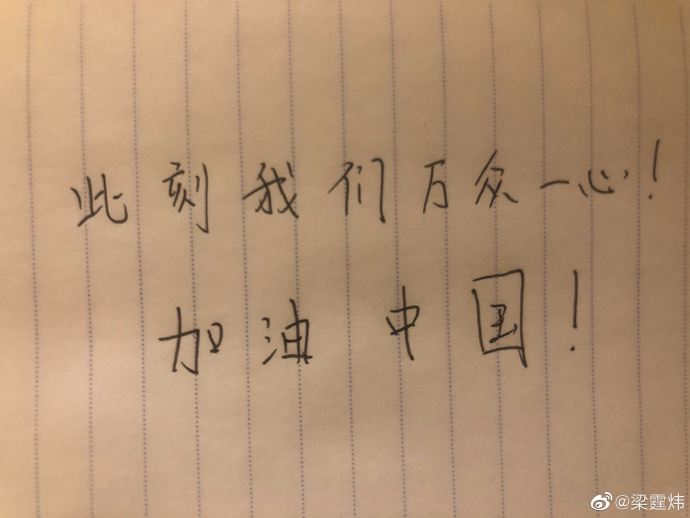 此刻我们万众一心！
加油中国！
@梁霆炜